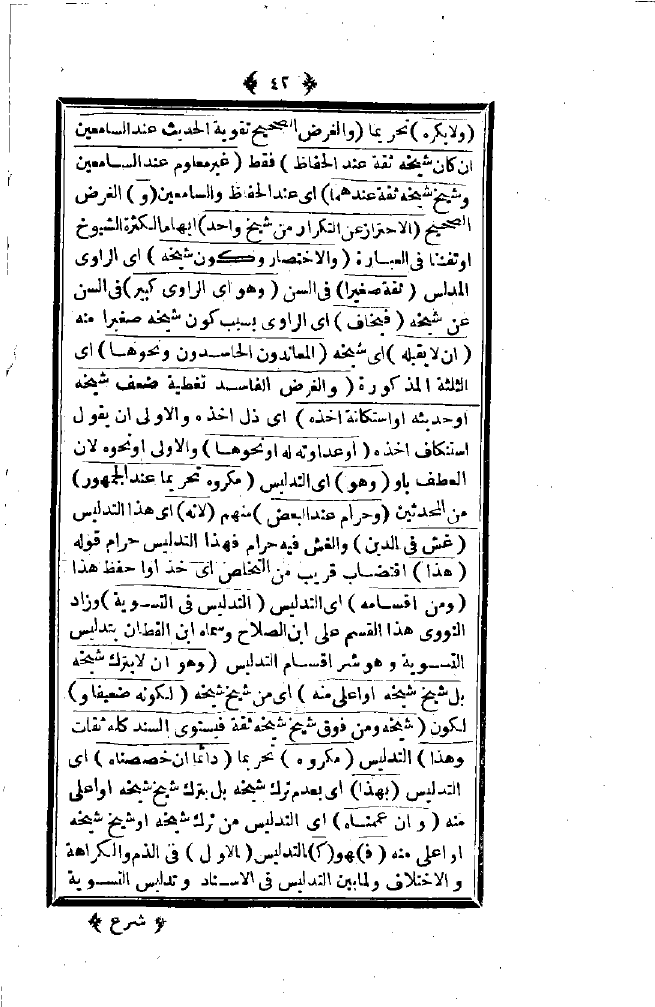 ﴿ ٤٢ ﴾
(ولا يكره) تحريما (والغرض الصحيح تقوية الحديث عند السامعين
ان كان شيخه ثقة عند الحفاظ) فقط (غير معلوم عند السامعين
وشيخ شيخه ثقة عندهما) اى عند الحفاظ والسامعين (و) الغرض
الصحيح (الاحتراز عن التكرار من شيخ واحد) ايهاما لكثرة الشيوخ
او تفننا فى العبارة (والاختصار وكون شيخه) اى الراوى
المدلس (ثقة صغيرا) فى السن (وهو اى الراوى كبير) فى السن
عن شيخه (فيخاف) اى الراوى بسبب كون شيخه صغيرا منه
(ان لا يقبله) اى شيخه (المعاندون الحاسدون ونحوها) اى
الثلثة المذكورة (والغرض الفاسد تغطية ضعف شيخه
او حديثه او استكانة اخذه) اى ذل اخذه والاولى ان يقول
استنكاف اخذه (او عداوته له او نحوها) والاولى او نحوه لان
العطف باو (وهو) اى التدليس (مكروه تحريما عند الجمهور)
من المحدثين (وحرام عند البعض) منهم (لانه) اى هذا التدليس
(غش فى الدين) والغش فيه حرام فهذا التدليس حرام قوله
(هذا) اقتضاب قريب من التخلص اى خذ او احفظ هذا
(ومن اقسامه) اى التدليس (التدليس فى التسوية) وزاد
النووى هذا القسم على ابن الصلاح وسماه ابن القطان بتدليس
التسوية وهو شر اقسام التدليس (وهو ان لا يترك شيخه
بل شيخ شيخه او اعلى منه) اى من شيخ شيخه (لكونه ضعيفا و)
لكون (شيخه ومن فوق شيخ شيخه ثقة فيستوى السند كله ثقات
وهذا) التدليس (مكروه) تحريما (دائما ان خصصناه) اى
التدليس (بهذا) اى بعدم ترك شيخه بل بترك شيخ شيخه او اعلى
منه (وان عممناه) اى التدليس من ترك شيخه او شيخ شيخه
او اعلى منه (ف) هو (كـ) التدليس (الاول) فى الذم والكراهة
والاختلاف ولما بين التدليس فى الاسناد وتدليس التسوية
﴿ شرع ﴾